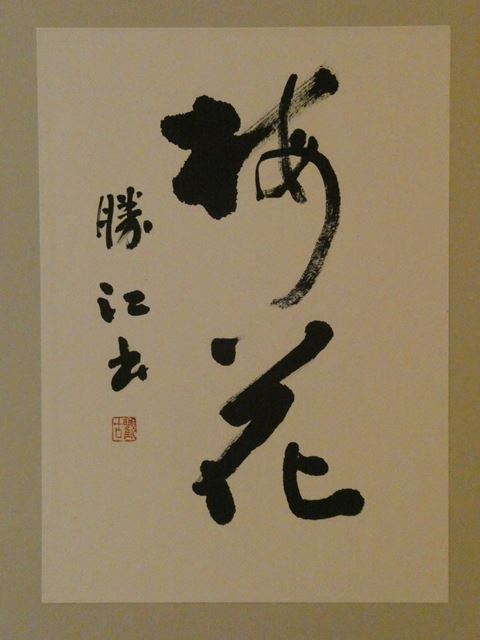 梅花
勝江書